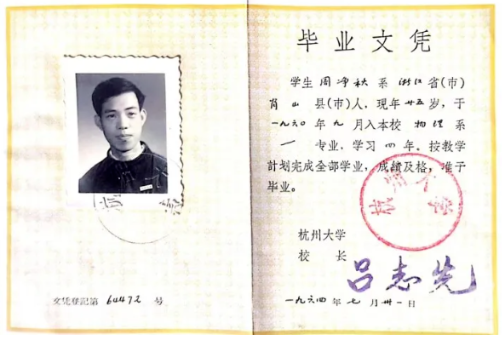 毕业文凭
学生 周净秋 系 浙江 省(市)
肖山 县(市)人, 现年 廿五 岁, 于
一九六〇 年 九 月入本校 物理 系
一 专业, 学习 四 年。按教学
计划完成全部学业, 成绩及格, 准予
毕业。
杭州大学
校 长 吕志先
一九六四 年 七 月 卅一 日
文凭登记第 64472 号
杭州大学